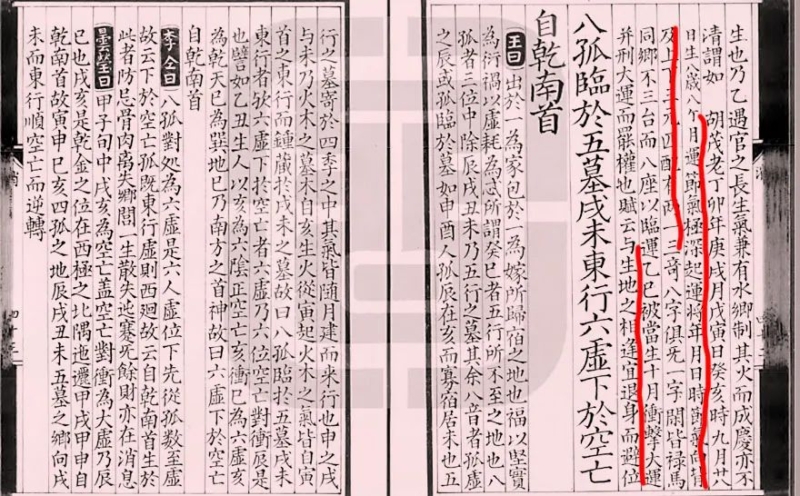 生也乃乙遇官之長生氣兼有水鄉制其火而成慶亦不
清謂如 胡茂老丁卯年庚戌月戊寅日癸亥時九月廿
日生八歲八个月運節氣極深起運將年月日時向背
及上下三元四配有兩一三奇八字俱无一字閑皆祿馬
同鄉不三台而八座以臨運乙巳被當生十月衝擊大運
并刑大運而罷權也賦云与生地之相逢宜退身而避位
八孤臨於五墓戌未東行六虛下於空亡
自乾南首
王曰 出於一為家包於一為嫁所歸宿之地也福以堅實
為衍禍以虛耗為忒所謂癸巳者五行所不至之地也八
孤者三位中除辰戌丑未乃五行之墓其余八音者孤虛
之辰或孤臨於墓如申酉人孤辰在亥而寡宿居未也五
行之墓寄於四季之中其氣皆隨月建而來行也申之戌
与未乃火木之墓木自亥生火從寅起火木之氣皆自寅
首之東行而鍾藏於戌未之墓故曰八孤臨於五墓戌未
東行者狀六虛下於空亡者六虛乃六位空亡對衝辰是
也譬如乙丑生人以亥為六陰正空亡亥衝巳為六虛亥
為乾天巳為巽地巳乃南方之首神故曰六虛下於空亡
自乾南首
李仝曰 八孤對處為六虛是六人虛位下先從孤數至虛
故云下於空亡孤既東行虛則西迴故云自乾南首生於
此者防忌骨肉喪失鄉閭一生散失迍蹇死餘財亦在消息
曇瑩曰 甲子旬中戌亥為空亡盖空亡對衝為大虛乃辰
巳也戌亥是乾金之位在西極之北隅迤邐甲戌甲申自
乾南首故寅申巳亥四孤之地辰戌丑未五墓之鄉向戌
未而東行順空亡而逆轉